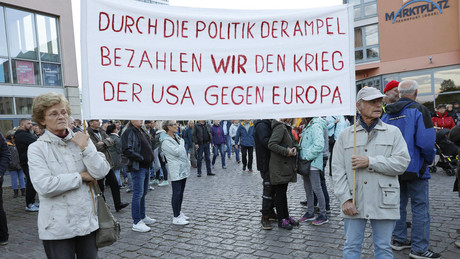 DURCH DIE POLITIK DER AMPEL
BEZAHLEN WIR DEN KRIEG
DER USA GEGEN EUROPA
MARKTPLATZ